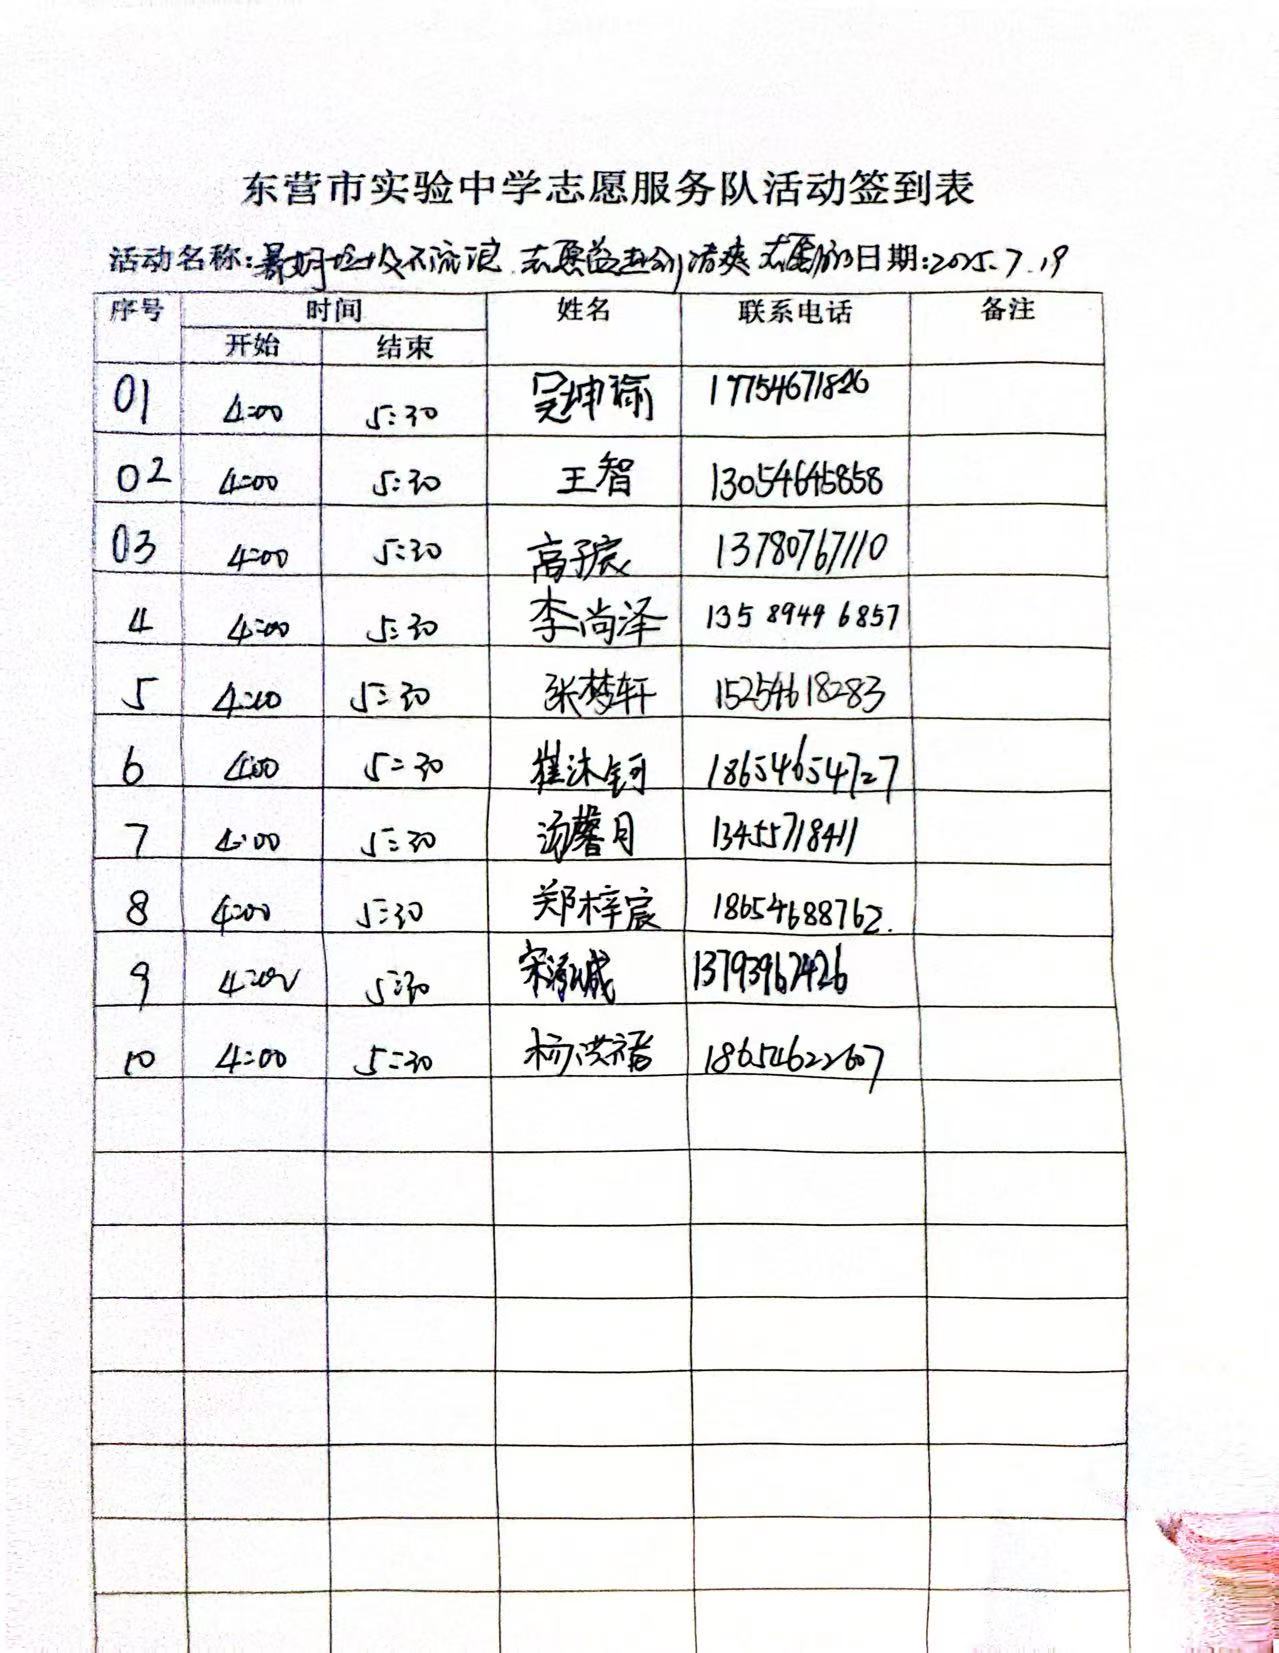 东营市实验中学志愿服务队活动签到表
活动名称: 垃圾不流浪 志愿 清爽 日期:2025.7.19
序号 时间 姓名 联系电话 备注
开始 结束
01 4:00 5:30 吴坤瑜 17754671826
02 4:00 5:30 王智 13054645858
03 4:00 5:30 高子宸 13780767110
4 4:00 5:30 李尚泽 135 8949 6857
5 4:00 5:30 张梦轩 15254618283
6 4:00 5:30 崔沐钶 18654654727
7 4:00 5:30 汤馨月 13455718411
8 4:00 5:30 郑梓宸 18654688762.
9 4:00 5:30 宋泓诚 13793967426
10 4:00 5:30 杨洪禧 18654622607